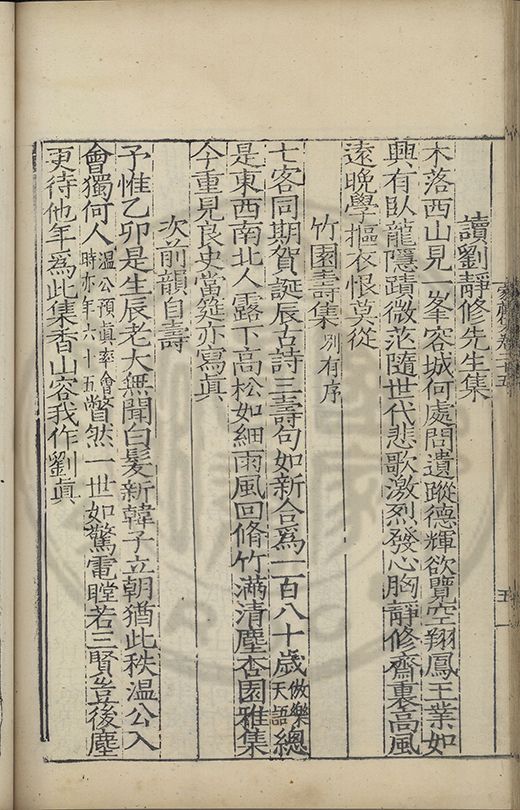 讀劉靜修先生集
木落西山見一峯容城何處問遺蹤德輝欲覽空翔鳳王業如
興有臥龍隱蹟微茫隨世代悲歌激烈發心胸靜修齋裏高風
遠晚學摳衣恨莫從
竹園壽集 別有序
七客同期賀誕辰古詩三壽句如新合爲一百八十歲 倣樂天語 總
是東西南北人露下高松如細雨風回脩竹滿清塵杏園雅集
今重見良史當筵亦寫真
次前韻自壽
予惟乙卯是生辰老大無聞白髮新韓子立朝猶此秩溫公入
會獨何人 溫公預真率會時亦年六十五 瞥然一世如驚電瞠若三賢豈後塵
更待他年爲此集香山容我作劉真
五